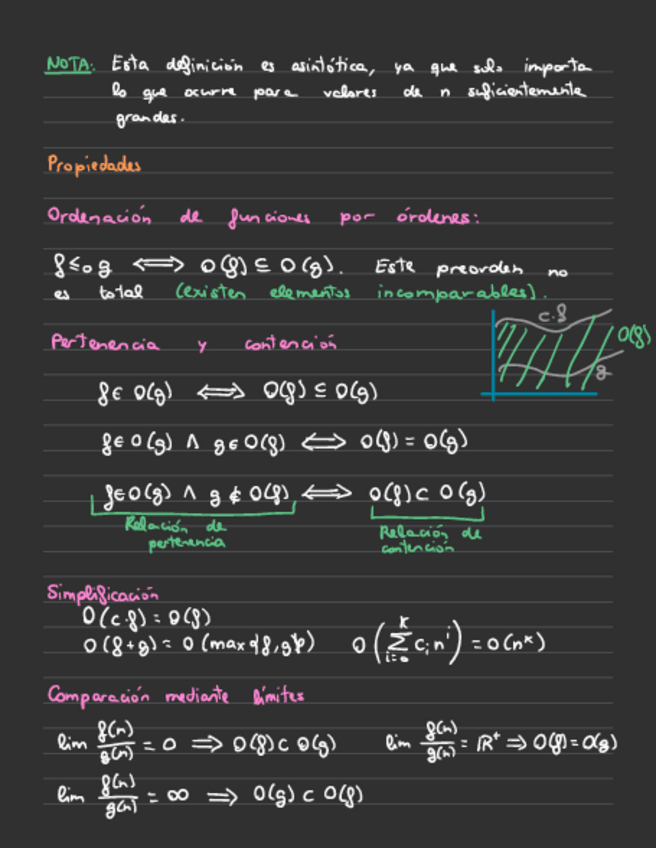 NOTA: Esta definición es asintótica, ya que solo importa
lo que ocurre para valores de n suficientemente
grandes.
Propiedades
Ordenación de funciones por órdenes:
f ≤₀ g ⟺ O(f) ⊆ O(g). Este preorden no
es total (existen elementos incomparables).
Pertenencia y contención
c·f
O(f)
g
f ∈ O(g) ⟺ O(f) ⊆ O(g)
f ∈ O(g) ∧ g ∈ O(f) ⟺ O(f) = O(g)
f ∈ O(g) ∧ g ∉ O(f) ⟺ O(f) ⊂ O(g)
Relación de
pertenencia
Relación de
contención
Simplificación
O(c·f) = O(f)
O(f+g) = O(max{f,g}) O(∑_{i=0}^{k} cᵢnⁱ) = O(nᵏ)
Comparación mediante límites
lim f(n)/g(n) = 0 ⟹ O(f) ⊂ O(g) lim f(n)/g(n) = ℝ⁺ ⟹ O(f) = O(g)
lim f(n)/g(n) = ∞ ⟹ O(g) ⊂ O(f)